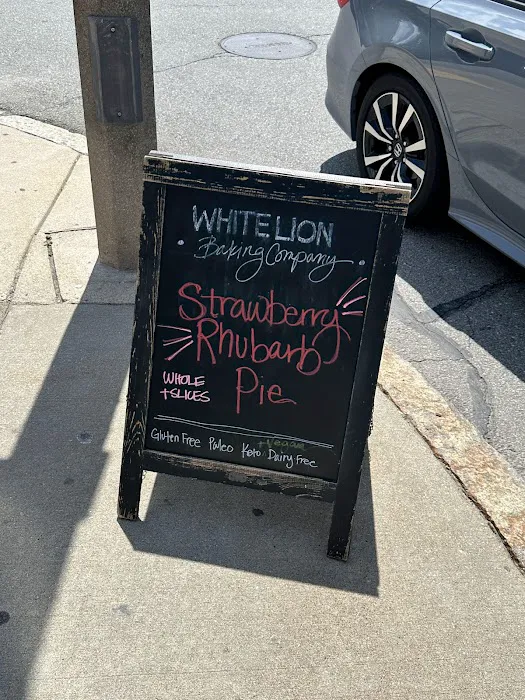 WHITE LION
Baking Company
Strawberry
Rhubarb
Pie
WHOLE
+SLICES
+Vegan
Gluten Free Paleo Keto Dairy Free